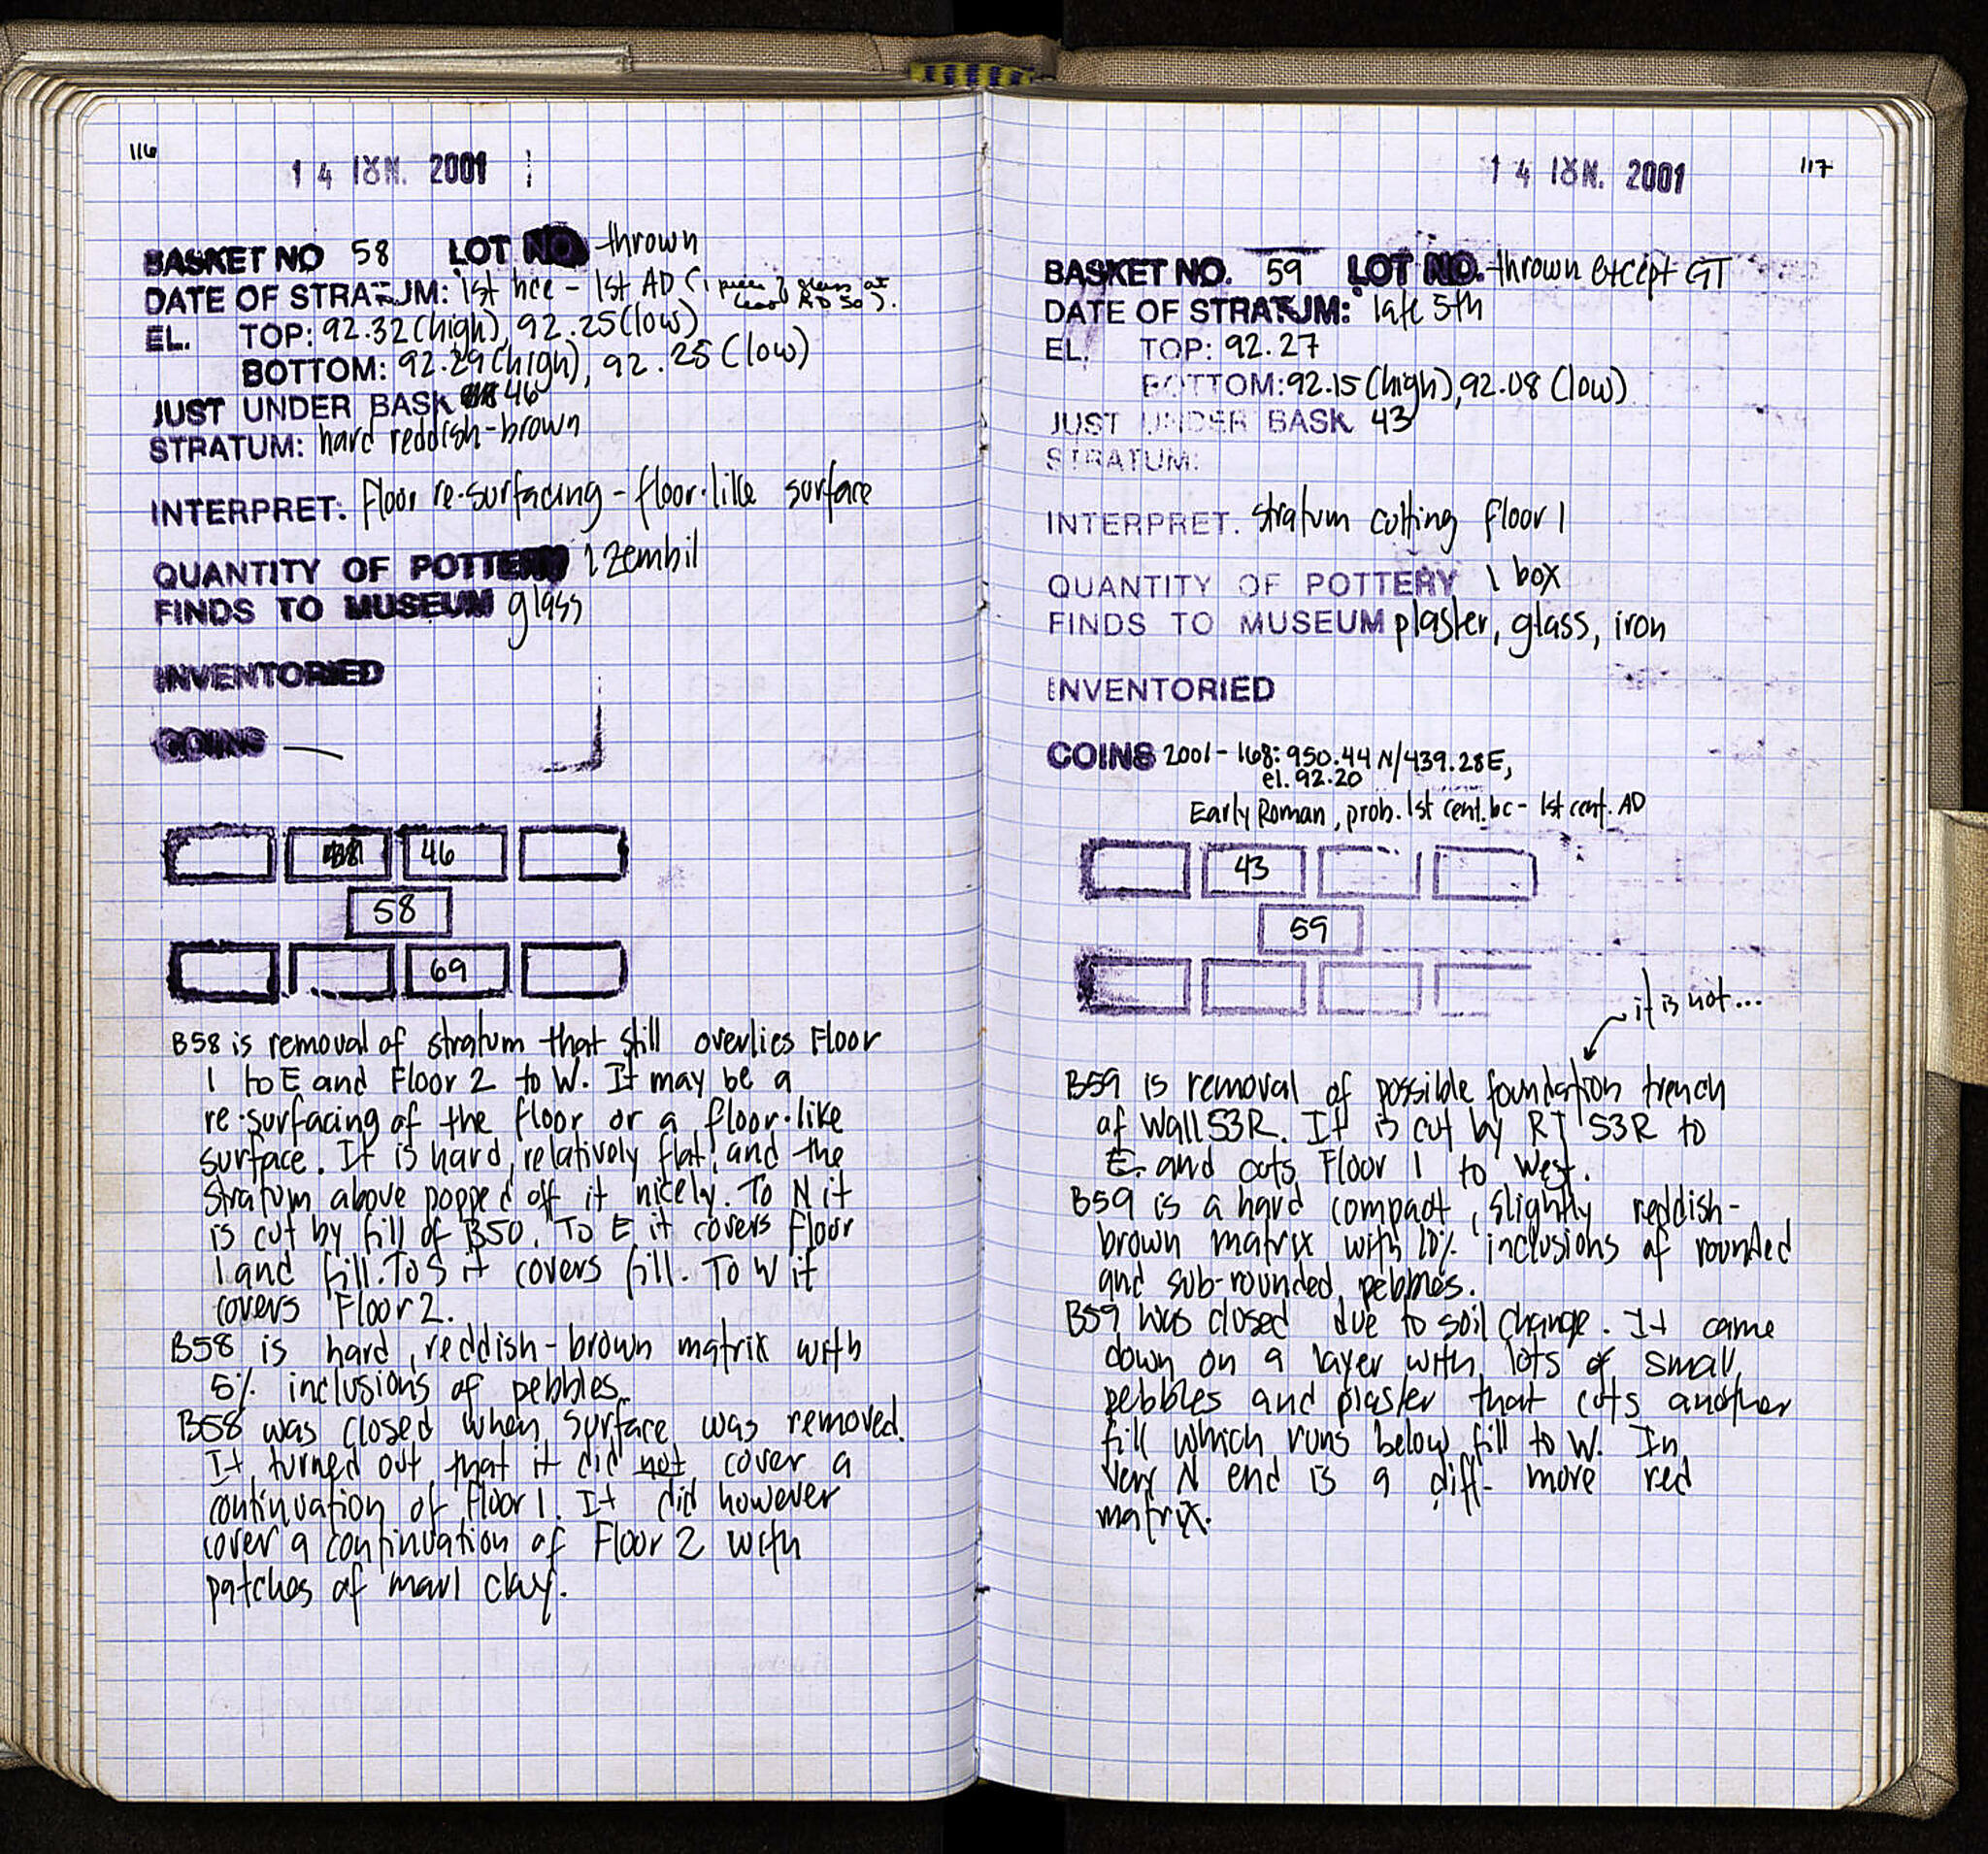 116
14 ΙΟΥΝ. 2001
BASKET NO 58 LOT NO thrown
DATE OF STRATUM: 1st bce - 1st AD (1 piece glass at least AD 50).
EL. TOP: 92.32 (high), 92.25 (low)
BOTTOM: 92.29 (high), 92.25 (low)
JUST UNDER BASK 46
STRATUM: hard reddish-brown
INTERPRET. Floor re-surfacing - floor-like surface
QUANTITY OF POTTERY 1 zembil
FINDS TO MUSEUM glass
INVENTORIED
COINS —
46
58
69
B58 is removal of stratum that still overlies Floor
1 to E and Floor 2 to W. It may be a
re-surfacing of the floor or a floor-like
surface. It is hard, relatively flat, and the
stratum above popped off it nicely. To N it
is cut by fill of B50. To E it covers Floor
1 and fill. To S it covers fill. To W it
covers Floor 2.
B58 is hard, reddish-brown matrix with
5% inclusions of pebbles.
B58 was closed when surface was removed.
It turned out that it did not cover a
continuation of floor 1. It did however
cover a continuation of Floor 2 with
patches of marl clay.
14 ΙΟΥΝ. 2001
117
BASKET NO. 59 LOT NO. thrown except GT
DATE OF STRATUM: late 5th
EL. TOP: 92.27
BOTTOM: 92.15 (high), 92.08 (low)
JUST UNDER BASK 43
STRATUM:
INTERPRET. stratum cutting floor 1
QUANTITY OF POTTERY 1 box
FINDS TO MUSEUM plaster, glass, iron
INVENTORIED
COINS 2001-168: 950.44 N/439.28E,
el. 92.20
Early Roman, prob. 1st cent. bc - 1st cent. AD
43
59
it is not...
B59 is removal of possible foundation trench
of Wall 53R. It is cut by RT 53R to
E. and cuts Floor 1 to West.
B59 is a hard compact, slightly reddish-
brown matrix with 10% inclusions of rounded
and sub-rounded pebbles.
B59 was closed due to soil change. It came
down on a layer with lots of small
pebbles and plaster that cuts another
fill which runs below fill to W. In
very N end is a diff. more red
matrix.